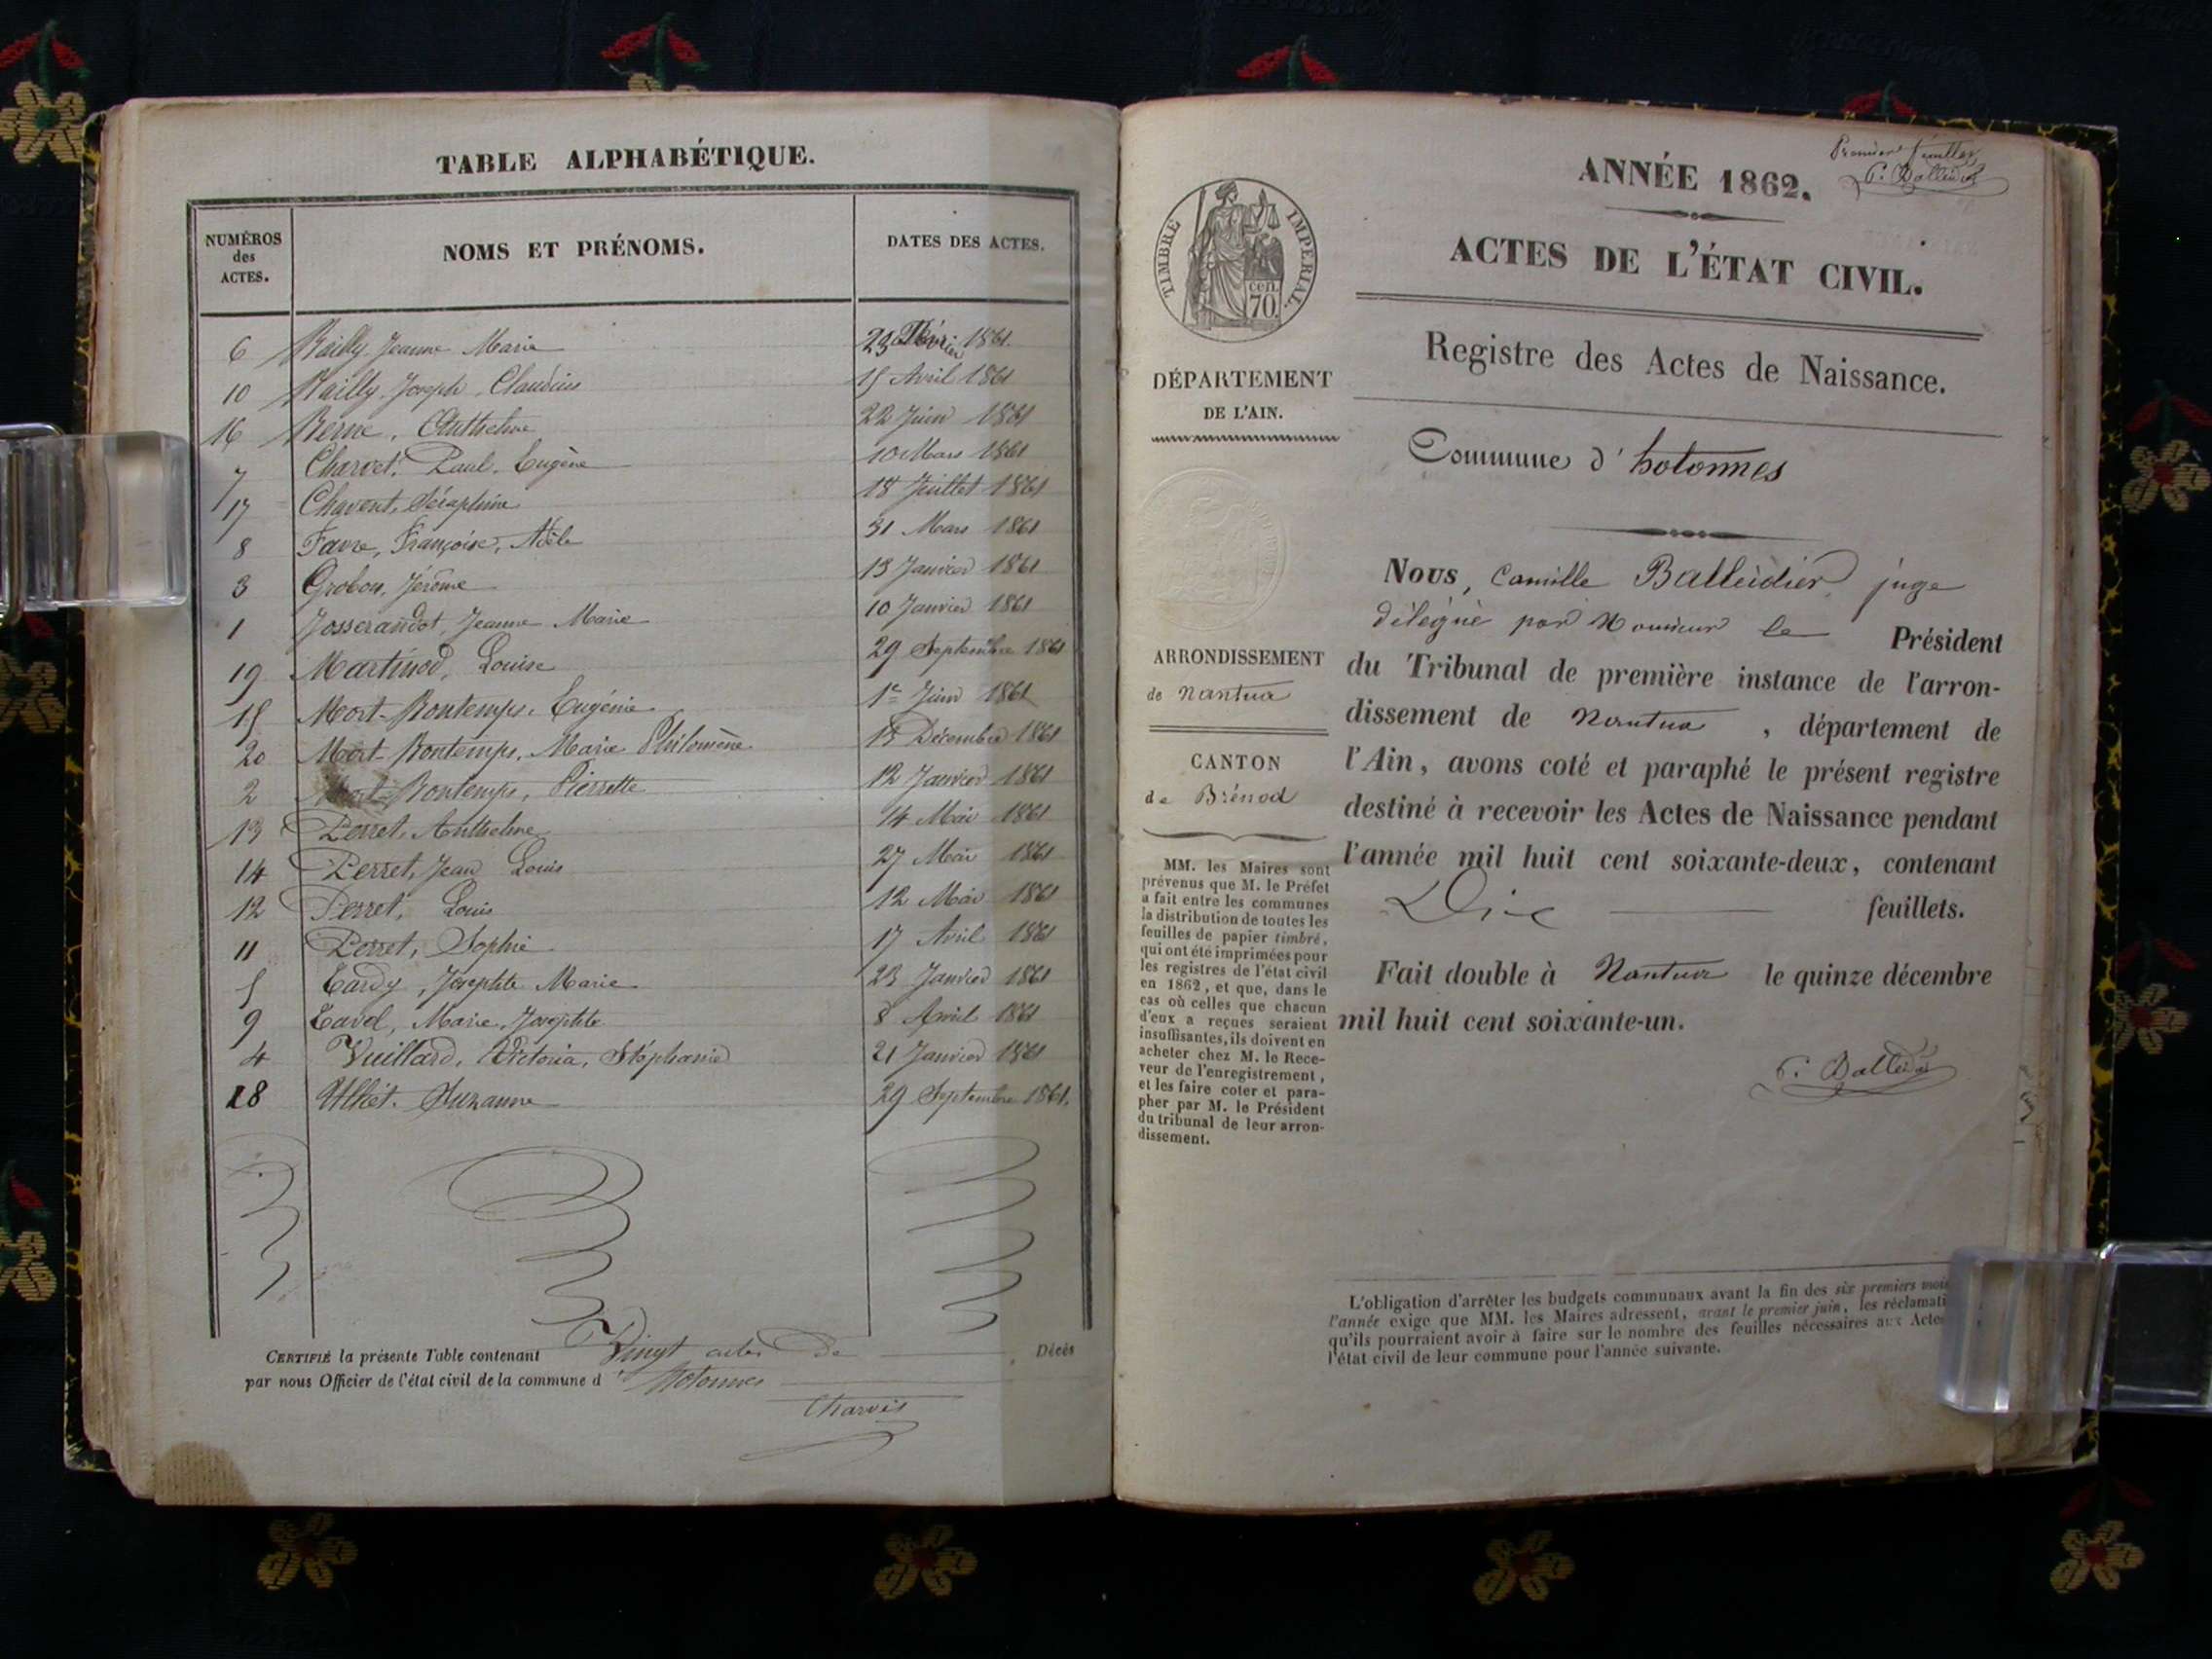 TABLE ALPHABÉTIQUE.
NUMÉROS des ACTES. NOMS ET PRÉNOMS. DATES DES ACTES.
6 Bailly Jeanne Marie 23 Février 1861.
10 Bailly Joseph Claudius 15 Avril 1861
16 Berne, Anthelme 22 Juin 1861
7 Charvet, Paul, Eugène 10 Mars 1861
17 Chavent, Séraphine 18 Juillet 1861
8 Favre, Françoise, Adèle 31 Mars 1861
3 Grobon, Jérôme 13 Janvier 1861
1 Josserandot, Jeanne Marie 10 Janvier 1861
19 Martinod, Louise 29 Septembre 1861
15 Mort-Bontemps, Eugénie 1er Juin 1861
20 Mort-Bontemps, Marie Philomène 15 Décembre 1861
2 Mort-Bontemps, Pierrette 12 Janvier 1861
13 Perret, Anthelme 14 Mai 1861
14 Perret, Jean Louis 27 Mai 1861
12 Perret, Louis 12 Mai 1861
11 Perret, Sophie 17 Avril 1861
5 Tardy, Josephte Marie 23 Janvier 1861
9 Tavel, Marie, Josephte 8 Avril 1861
4 Vuillard, Victoria, Stéphanie 21 Janvier 1861
18 Ulliet. Suzanne 29 Septembre 1861.
CERTIFIÉ la présente Table contenant Vingt actes de Décès
par nous Officier de l'état civil de la commune d'Hotonnes
Charvet
Premier feuillet
C. Balleidier
ANNÉE 1862.
ACTES DE L'ÉTAT CIVIL.
Registre des Actes de Naissance.
Commune d'hotonnes
TIMBRE IMPERIAL.
cen.
70.
DÉPARTEMENT
DE L'AIN.
ARRONDISSEMENT
de Nantua
CANTON
de Brénod
MM. les Maires sont
prévenus que M. le Préfet
a fait entre les communes
la distribution de toutes les
feuilles de papier timbré,
qui ont été imprimées pour
les registres de l'état civil
en 1862, et que, dans le
cas où celles que chacun
d'eux a reçues seraient
insuffisantes, ils doivent en
acheter chez M. le Rece-
veur de l'enregistrement,
et les faire coter et para-
pher par M. le Président
du tribunal de leur arron-
dissement.
Nous, Camille Balleidier, juge
délégué par Monsieur le Président
du Tribunal de première instance de l'arron-
dissement de Nantua, département de
l'Ain, avons coté et paraphé le présent registre
destiné à recevoir les Actes de Naissance pendant
l'année mil huit cent soixante-deux, contenant
Dix feuillets.
Fait double à Nantua le quinze décembre
mil huit cent soixante-un.
C. Balleidier
L'obligation d'arrêter les budgets communaux avant la fin des six premiers mois
l'année exige que MM. les Maires adressent, avant le premier juin, les réclamati
qu'ils pourraient avoir à faire sur le nombre des feuilles nécessaires aux Actes
l'état civil de leur commune pour l'année suivante.